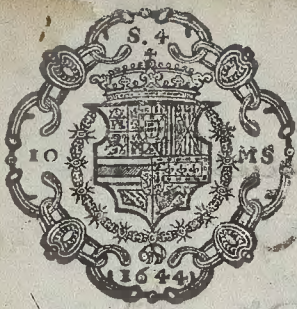 S. 4
10 MS
1644